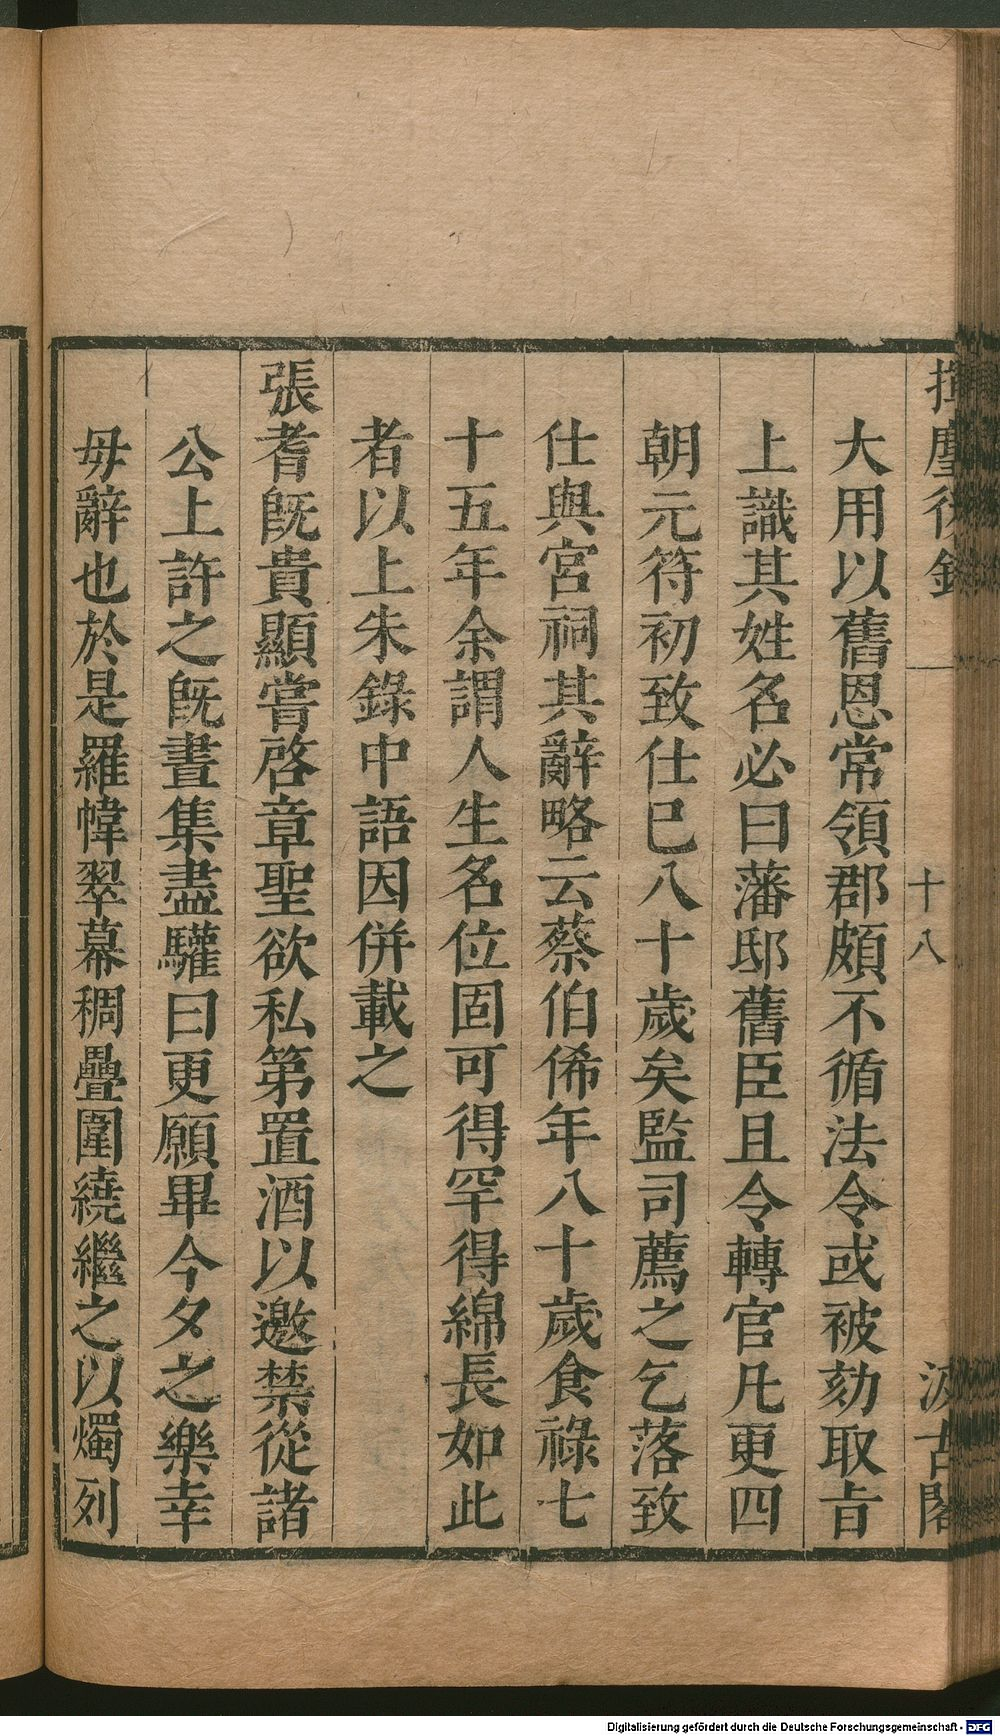 揮麈後錄
十八
汲古閣
大用以舊恩常領郡頗不循法令或被劾取㫖
上識其姓名必曰藩邸舊臣且令轉官凡更四
朝元符初致仕已八十歲矣監司薦之乞落致
仕與宮祠其辭略云蔡伯俙年八十歲食祿七
十五年余謂人生名位固可得罕得綿長如此
者以上朱錄中語因併載之
張耆旣貴顯嘗啓章聖欲私第置酒以邀禁從諸
公上許之旣晝集盡驩曰更願畢今夕之樂幸
毋辭也於是羅幃翠幕稠疊圍繞繼之以燭列
Digitalisierung gefördert durch die Deutsche Forschungsgemeinschaft - DFG